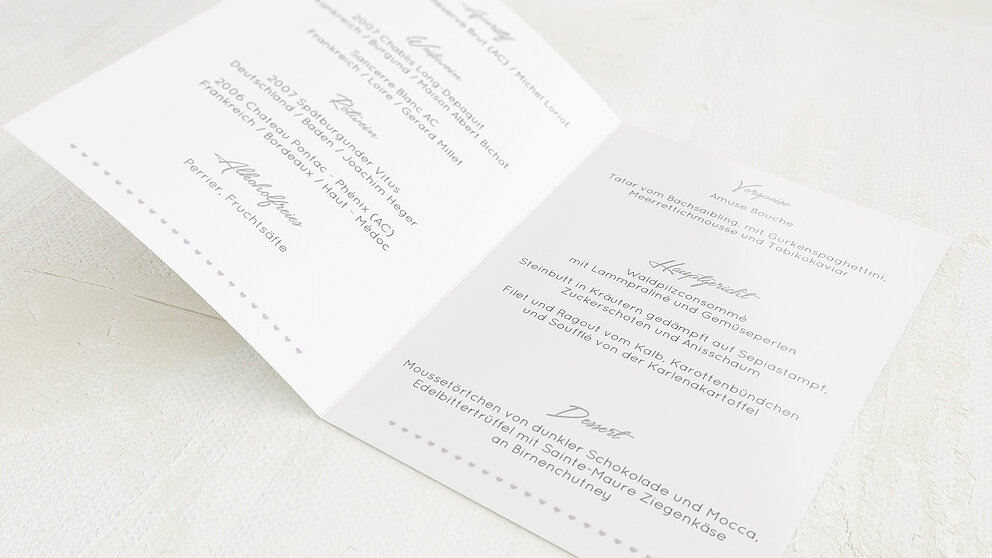 Aperitif
Reserve Brut (AC) / Michel Loriot
Weißwein
2007 Chablis Long-Depaquit
Frankreich / Burgund / Maison Albert Bichot
Sancerre Blanc AC
Frankreich / Loire / Gerard Millet
Rotwein
2007 Spätburgunder Vitus
Deutschland / Baden / Joachim Heger
2006 Chateau Pontac - Phénix (AC)
Frankreich / Bordeaux / Haut - Médoc
Alkoholfreies
Perrier, Fruchtsäfte
Vorspeise
Amuse Bouche
Tatar vom Bachsaibling, mit Gurkenspaghettini,
Meerrettichmousse und Tobikokaviar
Hauptgericht
Waldpilzconsommé
mit Lammpraliné und Gemüseperlen
Steinbutt in Kräutern gedämpft auf Sepiastampf,
Zuckerschoten und Anisschaum
Filet und Ragout vom Kalb, Karottenbündchen
und Soufflé von der Karlenakartoffel
Dessert
Moussetörtchen von dunkler Schokolade und Mocca,
Edelbittertrüffel mit Sainte-Maure Ziegenkäse
an Birnenchutney